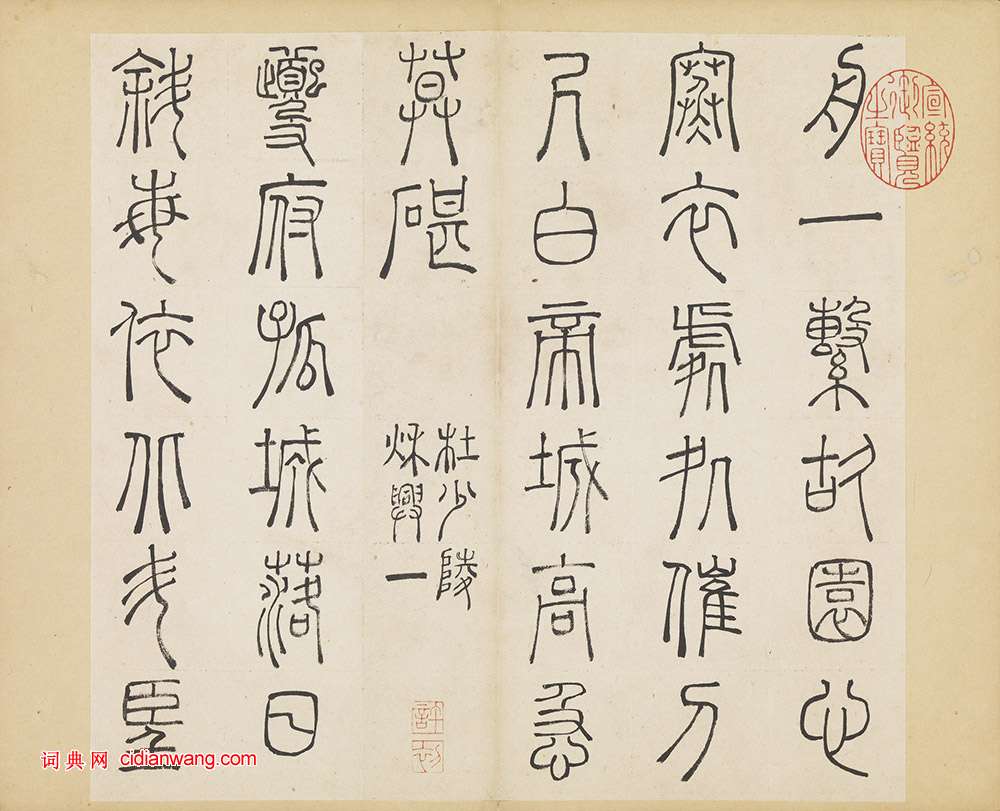 舟一繫故園心
寒衣處処催刀
尺白帝城高急
莫碪
杜少陵
秋興一
許初
夔府孤城落日
斜每依北斗望
宣統御覽之寶
词典网 cidianwang.com